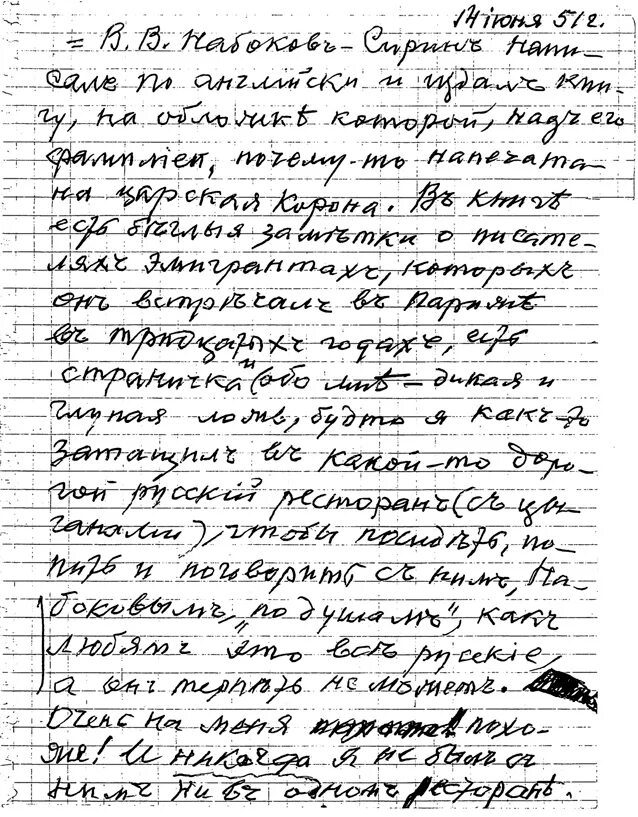 14 iюня 51 г.
= В. В. Набоковъ-Сиринъ напи-
салъ по англiйски и издалъ кни-
гу, на обложкѣ которой, надъ его
фамилiей, почему-то напечата-
на царская корона. Въ книгѣ
есть бѣглыя замѣтки о писате-
ляхъ эмигрантахъ, которыхъ
онъ встрѣчалъ въ Парижѣ
въ тридцатыхъ годахъ, есть
страничка и обо мнѣ – дикая и
глупая ложь, будто я какъ-то
затащилъ въ какой-то доро-
гой русскiй ресторанъ (съ цы-
ганами), чтобы посидѣть, по-
пить и поговорить съ нимъ, На-
боковымъ, „по душамъ", какъ
любятъ это всѣ русскiе,
а онъ терпѣть не можетъ.
Очень на меня похо-
же! И никогда я не былъ съ
нимъ ни въ одномъ ресторанѣ.